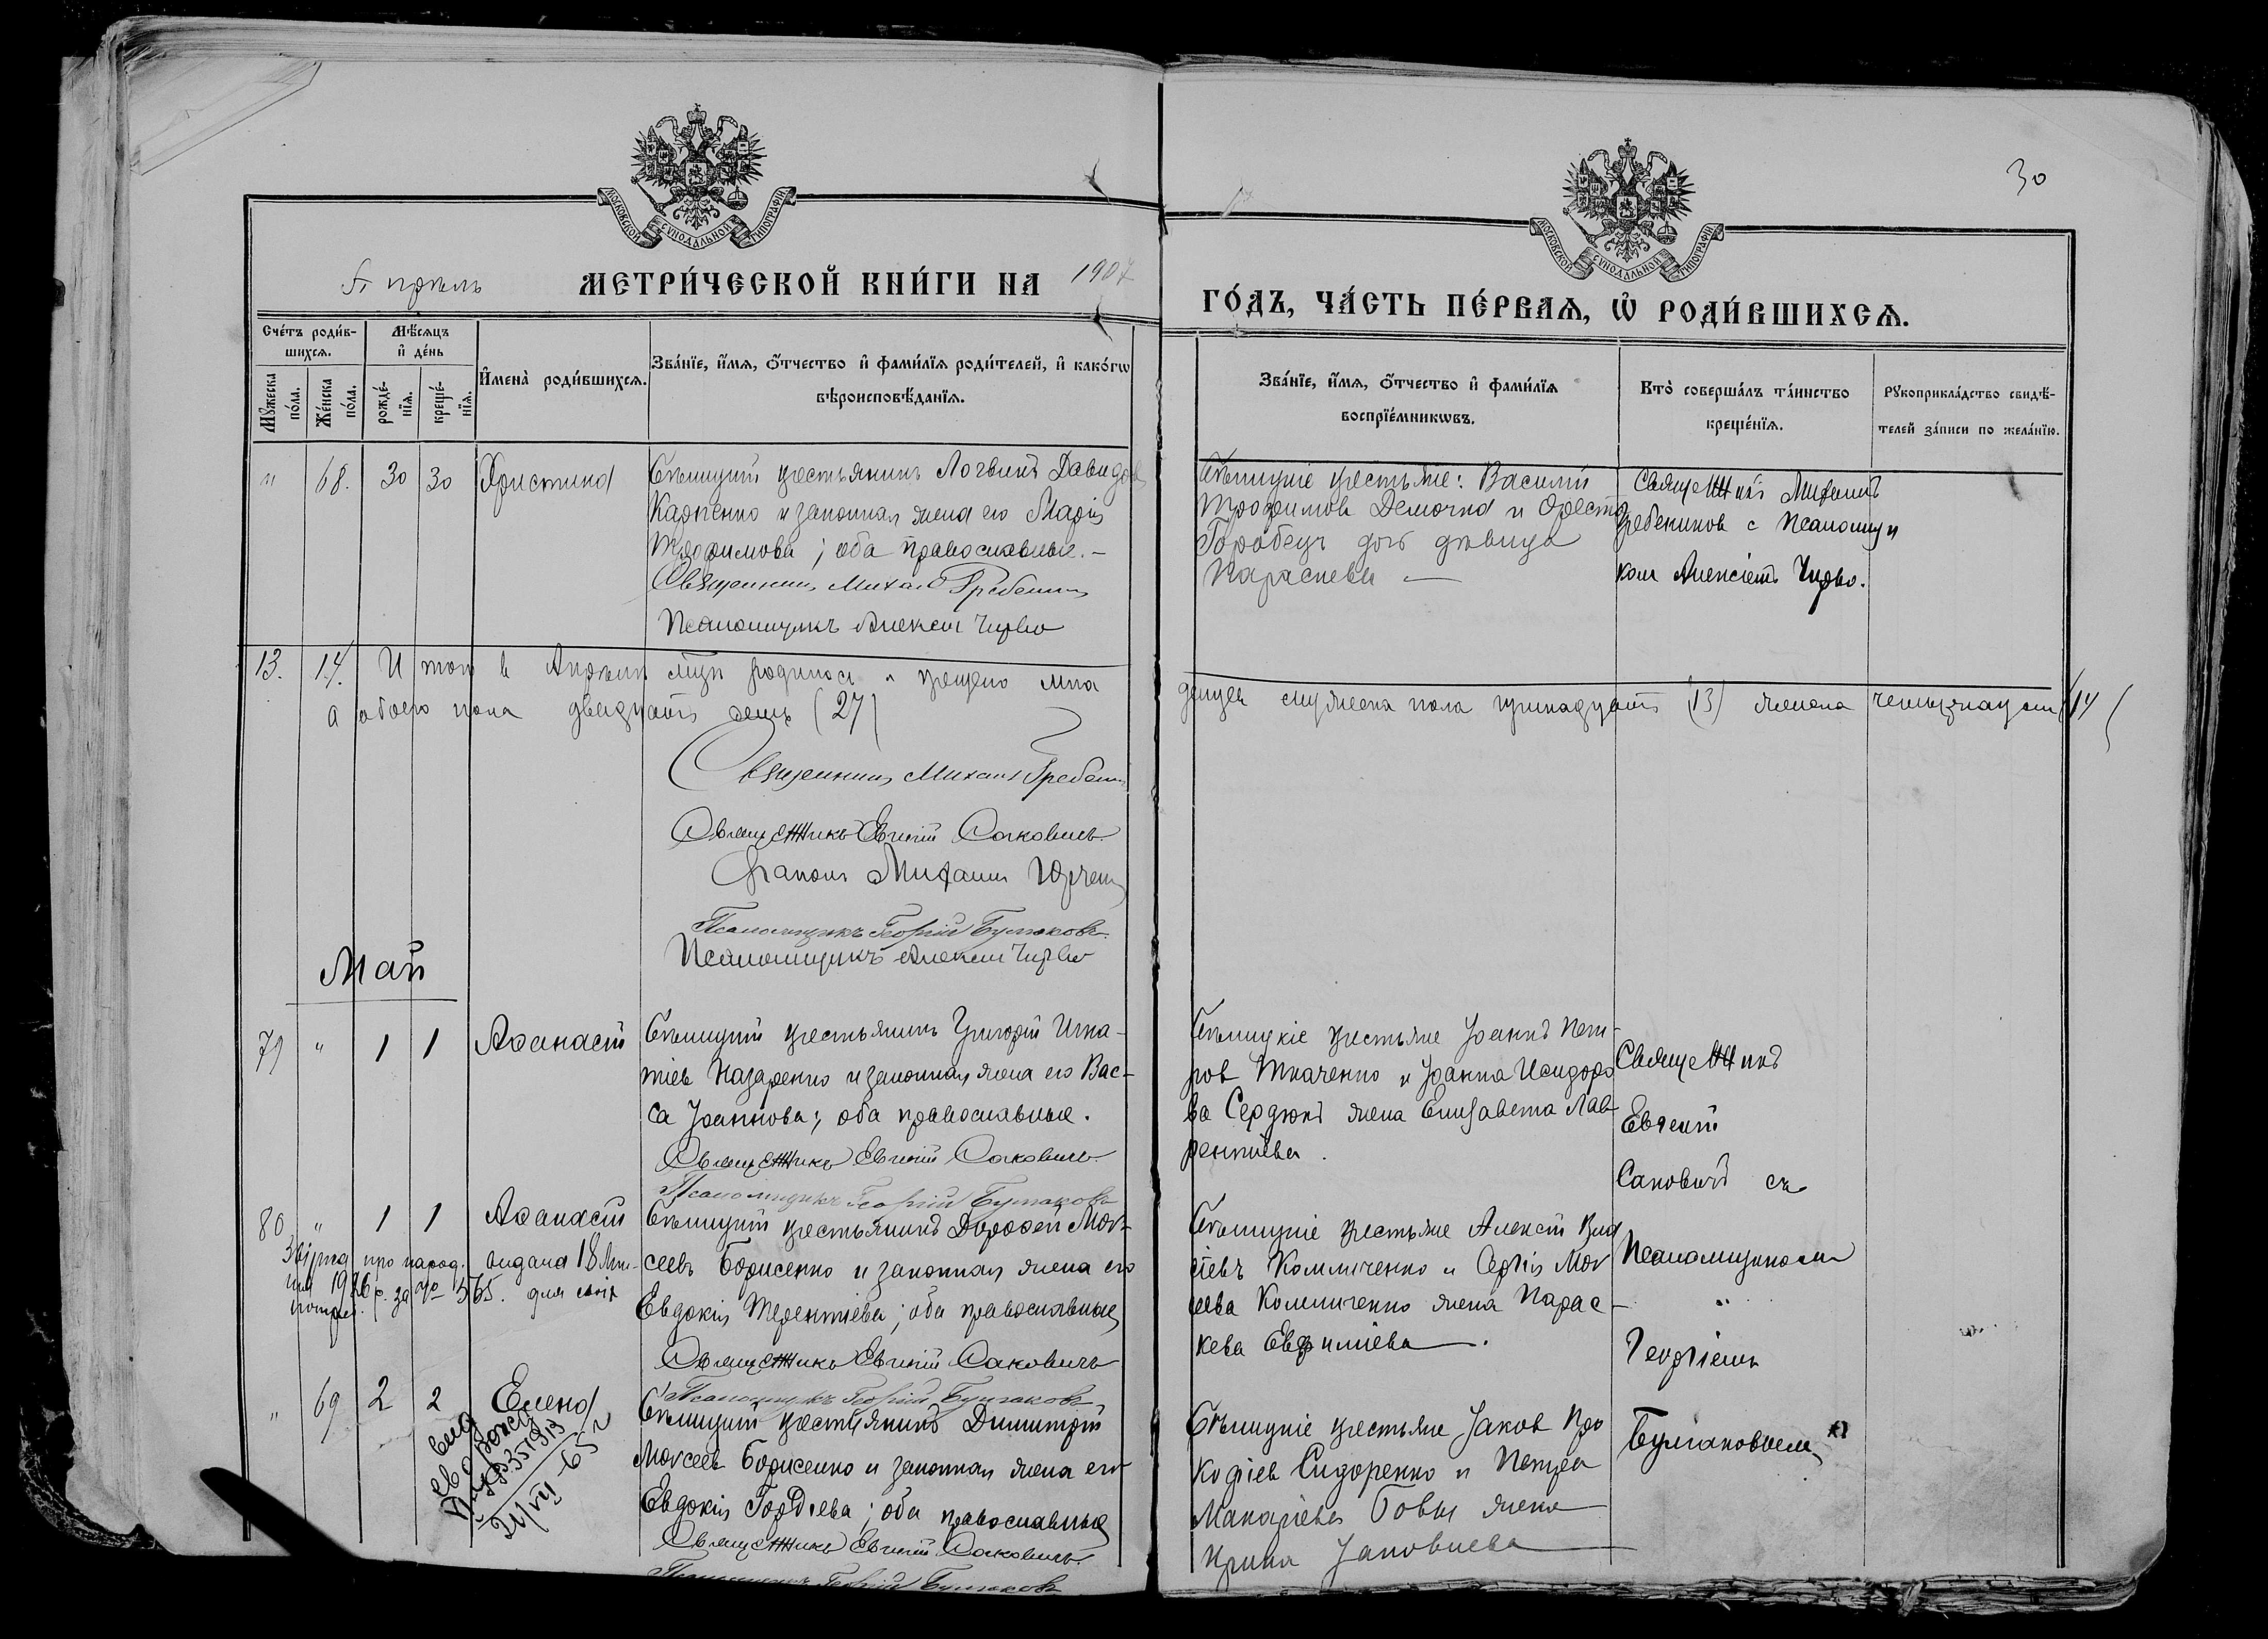 30
МОСКОВСКОЙ СУНОДАЛЬНОЙ ТИПОГРАФІИ
МОСКОВСКОЙ СУНОДАЛЬНОЙ ТИПОГРАФІИ
Апрѣль МЕТРИ́ЧЕСКОЙ КНИ́ГИ НА 1907
ГО́ДЪ, ЧА́СТЬ ПЕ́РВАѦ, Ѡ҆ РОДИ́ВШИХСѦ.
Сче́тъ роди́в-
шихсѧ.
Мꙋ́жеска по́ла.
Же́нска по́ла.
Мѣ́сѧцъ
и҆ де́нь
рожде́-
нїѧ.
креще́-
нїѧ.
И҆мена̀ роди́вшихсѧ.
Зва́нїе, и҆́мѧ, ѻ҆́тчество и҆ фами́лїѧ роди́телей, и҆ како́гѡ
вѣроисповѣ́данїѧ.
Зва́нїе, и҆́мѧ, ѻ҆́тчество и҆ фами́лїѧ
воспрїе́мникѡвъ.
Кто̀ соверша́лъ та́инство
креще́нїѧ.
Рꙋкоприкла́дство свидѣ́-
телей за́писи по жела́нїю.
" 68. 30 30 Христина
крестьянинъ Логвинъ Давидов
Карпенко и законная жена его Марія
Трофимова; оба православные.-
Священникъ Михаил Гребеник
Псаломщикъ Алексій Чирво
крестьяне: Василій
Трофимовъ Демочка и Орест
Горобець дочь дѣвица
Параскева —
Священникъ Михаилъ
Гребениковъ с Псаломщи
ком Алексіемъ Чирво.
13. 14. Итого в Апрѣлѣ мцѣ родилось и крещено мла
обоего пола двадцать семь (27)
денцев мужеска пола тринадцать (13) женска четырнадцать (14)
Священникъ Михаил Гребеник
Священникъ Евгеній Саковичъ
Діаконъ Михаилъ Юрчен
Псаломщикъ Георгій Булгаковъ
Псаломщикъ Алексій Чирво
Май
79 " 1 1 Аѳанасій
крестьянинъ Григорій Игна-
тіев Назаренко и законная жена его Вас-
са Іоаннова; оба православные.
Священникъ Евгеній Саковичъ
Псаломщикъ Георгій Булгаковъ
крестьяне Іоаннъ Пет-
ров Ткаченко и Іоанна Исидоро
ва Сердюкъ жена Елизавета Лав-
рентіева.
Священникъ
Евгеній
Саковичъ съ
80 " 1 1 Аѳанасій
про народ. видана 18
1926 р. за № 565. для
крестьянинъ Дороѳей Мои-
сеевъ Борисенко и законная жена его
Евдокія Терентіева; оба православные
Священникъ Евгеній Саковичъ
Псаломщикъ Георгій Булгаковъ
крестьяне Алексій
сіевъ Коммиченко и Сергія Мои
сеева Коммиченко жена Парас-
кева Евфиміева.
Псаломщикомъ
"
Георгіемъ
" 69 2 2 Елена
21/VII-65 г
крестьянинъ Димитрій
Моисеевъ Борисенко и законная жена его
Евдокія Гордіева; оба православные
Священникъ Евгеній Саковичъ.
Псаломщикъ Георгій Булгаковъ
крестьяне Іаков Про
кофіев Сидоренко и Петра
Макаріева Бовы жена
Ирина Іаковлева
Булгаковымъ